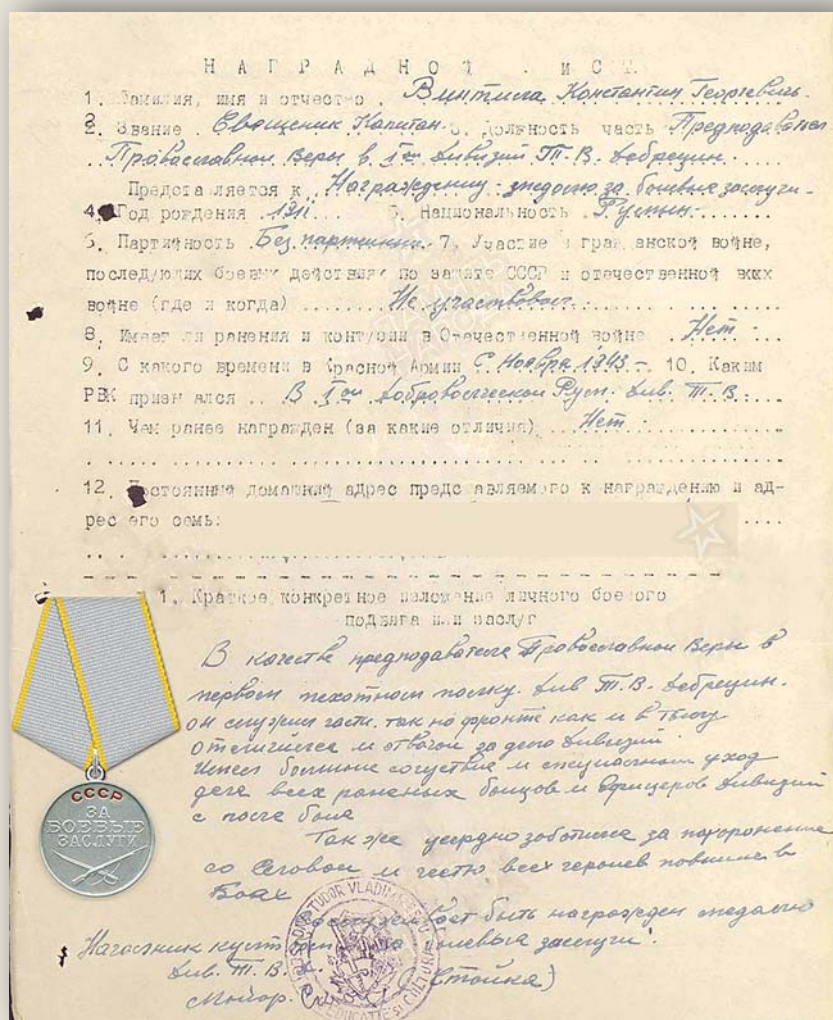 Н А Г Р А Д Н О Й . И С Т
1. Фамилия, имя и отчество . Винтила Константин Георгевичь.
2. Звание . Священик Капитан 3. Должность часть Преподаватель
Православной Веры в 1ой Дивизии Т.В. Дебрецин
Представляется к Награждению медалю за боевыя заслуги
4. Год рождения . 1911 5. Национальность . Румын
6. Партийность . Без партийный. 7. Участие в гражданской войне,
последующих боевых действиях по защите СССР и отечественной
войне (где и когда) Не участвовал
8. Имеет ли ранения и контузии в Отечественной войне . Нет
9. С какого времени в Красной Армии С Ноября 1943 10. Каким
РВК призвался .. В 1ой Добровольческой Рум. Див. Т. В.
11. Чем ранее награжден (за какие отличия) Нет
12. Постоянный домашний адрес представляемого к награждению и ад-
рес его семь:
1. Краткое конкретное изложение личного боевого
подвига или заслуг
В качестве преподавателя Православной Веры в
первом пехотном полку. Див Т.В. Дебрецин.
он служил части. так на фронте как и в тылу
отличился и отвечал за дело Дивизии
Имел большие и специальный уход
для всех раненых бойцов и офицеров Дивизии
с поля боя
Так же усердно заботился за похоронение
со Славой и честю всех героиев в
Боях
быть награжден медалю
Началник боевыя заслуги.
Див. Т. В.
Майор. (Стойка)
TUDOR VLADIMIRESCU
EDUCATIE SI CULTURA
СССР
ЗА
БОЕВЫЕ
ЗАСЛУГИ